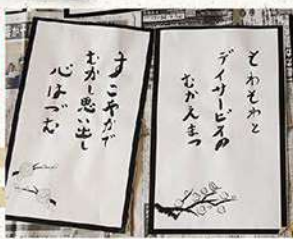 そわそわと
デイサービスの
むかえまつ
すこやかで
むかし思い出し
心はづむ